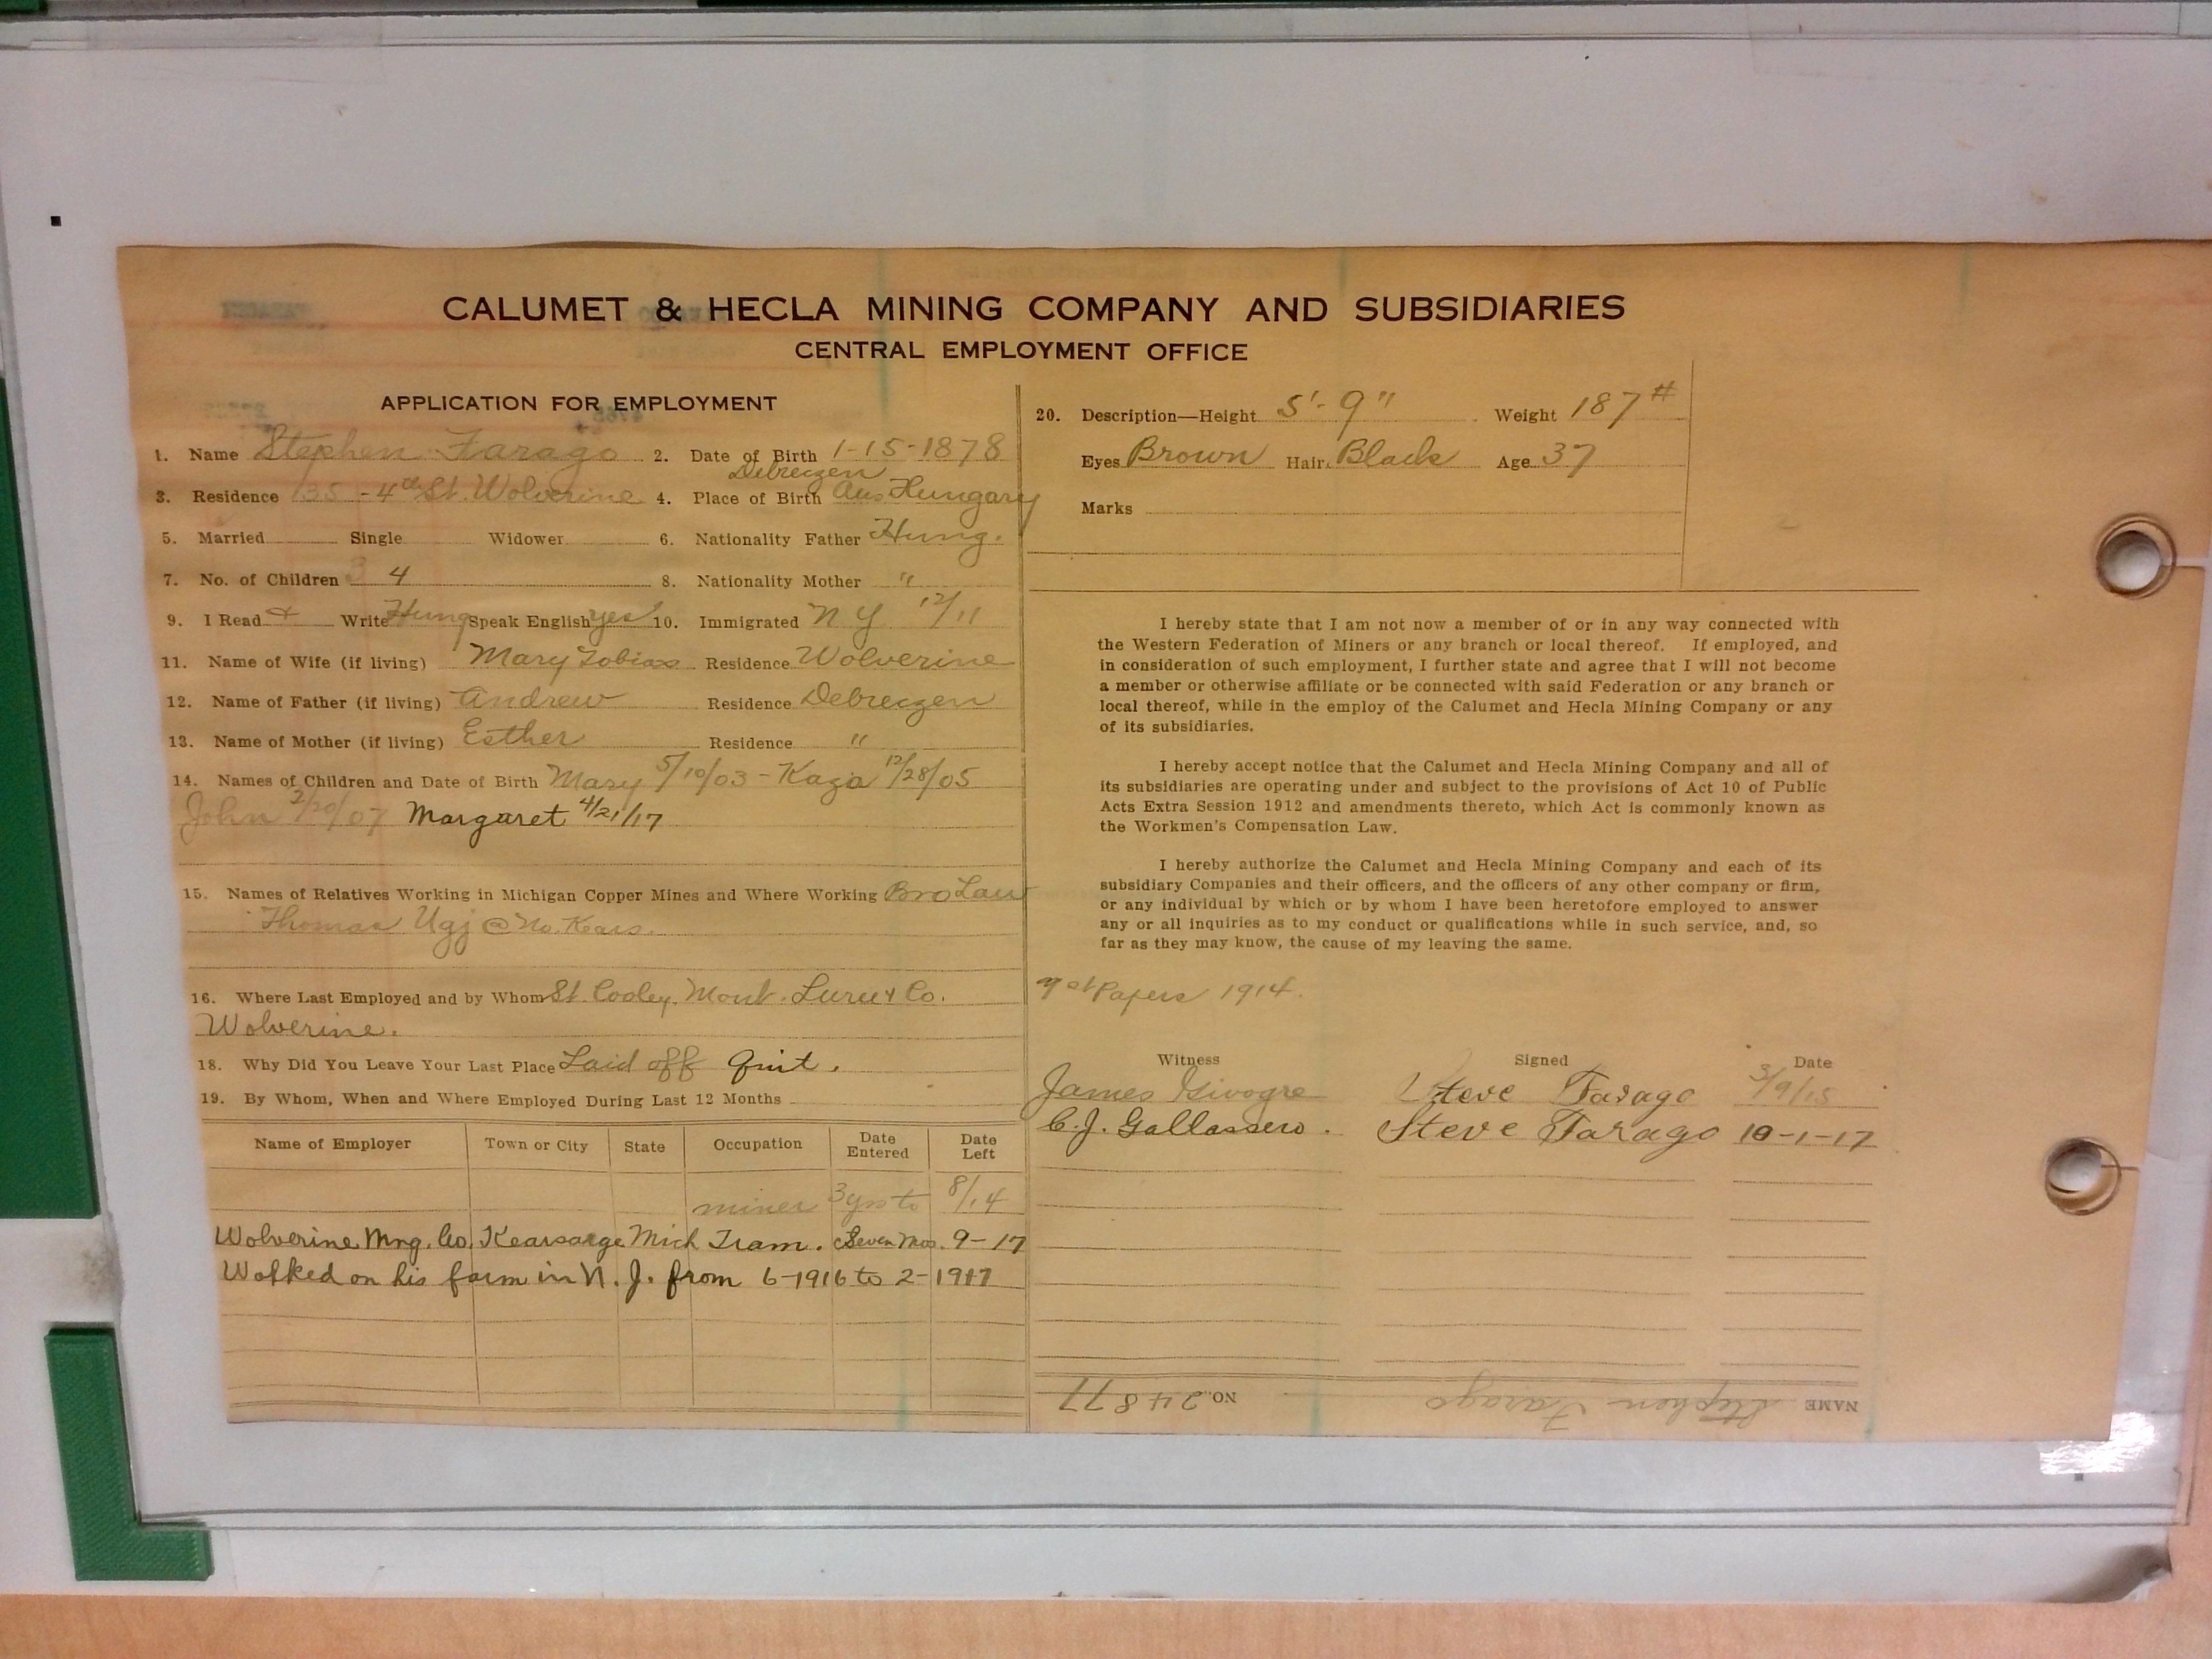 CALUMET & HECLA MINING COMPANY AND SUBSIDIARIES
CENTRAL EMPLOYMENT OFFICE
APPLICATION FOR EMPLOYMENT
1. Name Stephen Farago 2. Date of Birth 1-15-1878
Debreczen
3. Residence 135 - 4th St. Wolverine 4. Place of Birth Aus Hungary
5. Married Single Widower 6. Nationality Father Hung.
7. No. of Children 3 4 8. Nationality Mother "
9. I Read + Write Hung Speak English yes 10. Immigrated N Y 12/11
11. Name of Wife (if living) Mary Tobias Residence Wolverine
12. Name of Father (if living) Andrew Residence Debreczen
13. Name of Mother (if living) Esther Residence "
14. Names of Children and Date of Birth Mary 5/10/03 - Kaza 12/28/05
John 2/20/07 Margaret 4/21/17
15. Names of Relatives Working in Michigan Copper Mines and Where Working Bro Law
Thomas Ugj @ No. Kears.
16. Where Last Employed and by Whom St. Cooley, Mont. Co.
Wolverine.
18. Why Did You Leave Your Last Place Laid off Quit.
19. By Whom, When and Where Employed During Last 12 Months
Name of Employer Town or City State Occupation Date Entered Date Left
miner 3 yrs to 8/14
Wolverine Mng. Co. Kearsarge Mich Tram. Seven Mos. 9-17
Wolked on his farm in N. J. from 6-1916 to 2-1917
20. Description—Height 5'-9" Weight 187#
Eyes Brown Hair Black Age 37
Marks
I hereby state that I am not now a member of or in any way connected with
the Western Federation of Miners or any branch or local thereof. If employed, and
in consideration of such employment, I further state and agree that I will not become
a member or otherwise affiliate or be connected with said Federation or any branch or
local thereof, while in the employ of the Calumet and Hecla Mining Company or any
of its subsidiaries.
I hereby accept notice that the Calumet and Hecla Mining Company and all of
its subsidiaries are operating under and subject to the provisions of Act 10 of Public
Acts Extra Session 1912 and amendments thereto, which Act is commonly known as
the Workmen's Compensation Law.
I hereby authorize the Calumet and Hecla Mining Company and each of its
subsidiary Companies and their officers, and the officers of any other company or firm,
or any individual by which or by whom I have been heretofore employed to answer
any or all inquiries as to my conduct or qualifications while in such service, and, so
far as they may know, the cause of my leaving the same.
Papers 1914.
Witness Signed Date
James Givogre Steve Farago 3/9/15
C. J. Gallassero. Steve Farago 10-1-17
NAME Stephen Farago NO. 24877